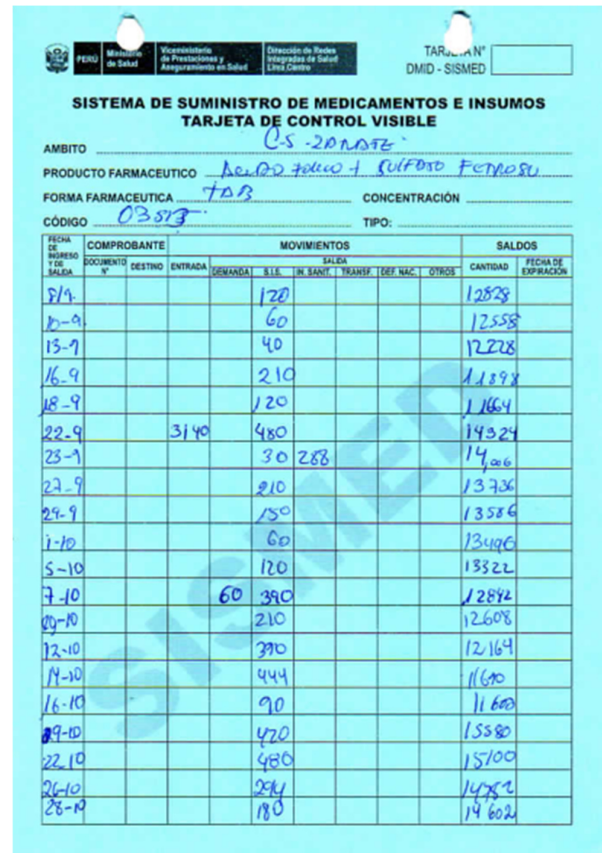 PERÚ Ministerio de Salud Viceministerio de Prestaciones y Aseguramiento en Salud Dirección de Redes Integradas de Salud Lima Centro
TARJETA N°
DMID - SISMED
SISTEMA DE SUMINISTRO DE MEDICAMENTOS E INSUMOS
TARJETA DE CONTROL VISIBLE
AMBITO C.S - ZARATE
PRODUCTO FARMACEUTICO ACIDO FOLICO + SULFATO FERROSO
FORMA FARMACEUTICA TAB CONCENTRACIÓN
CÓDIGO 03513 TIPO:
FECHA DE INGRESO Y DE SALIDA COMPROBANTE MOVIMIENTOS SALDOS
SALIDA
DOCUMENTO N° DESTINO ENTRADA DEMANDA S.I.S. IN. SANIT. TRANSF. DEF. NAC. OTROS CANTIDAD FECHA DE EXPIRACIÓN
8/9. 120 12828
10-9 60 12558
13-9 40 12228
16-9 210 11898
18-9 120 11664
22-9 3140 480 14324
23-9 30 288 14,006
27-9 210 13736
29-9 150 13586
1-10 60 13496
5-10 120 13322
7-10 60 390 12892
09-10 210 12608
12-10 390 12164
14-10 444 11690
16-10 90 11600
19-10 420 15580
22 10 480 15100
26-10 294 14782
28-10 180 14602
SISMED